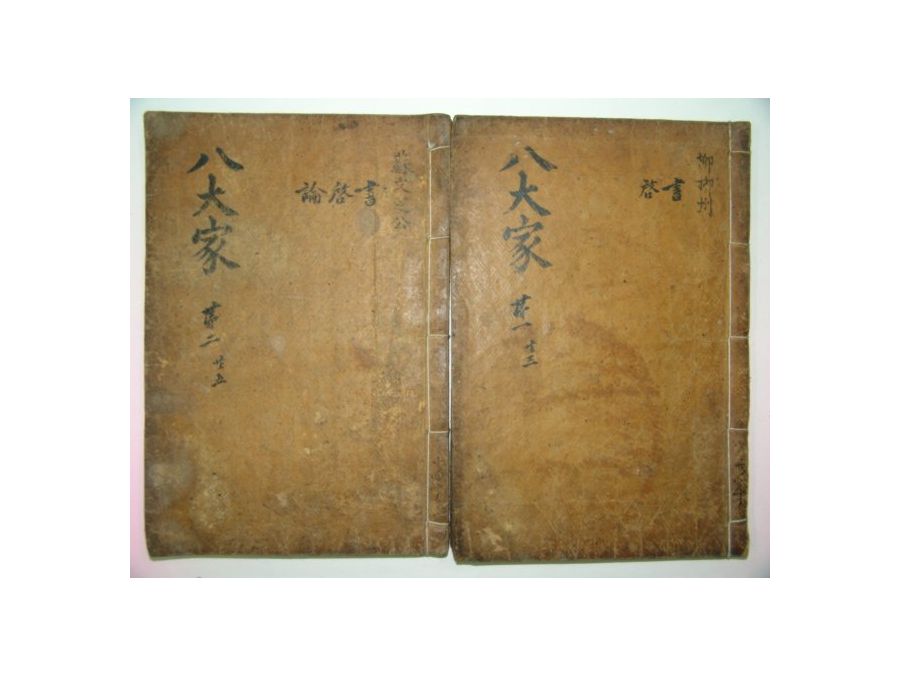 柳柳州
書啓
八大家
苐一 卄三
蘇文忠公
書啓論
八大家
苐二 卄五